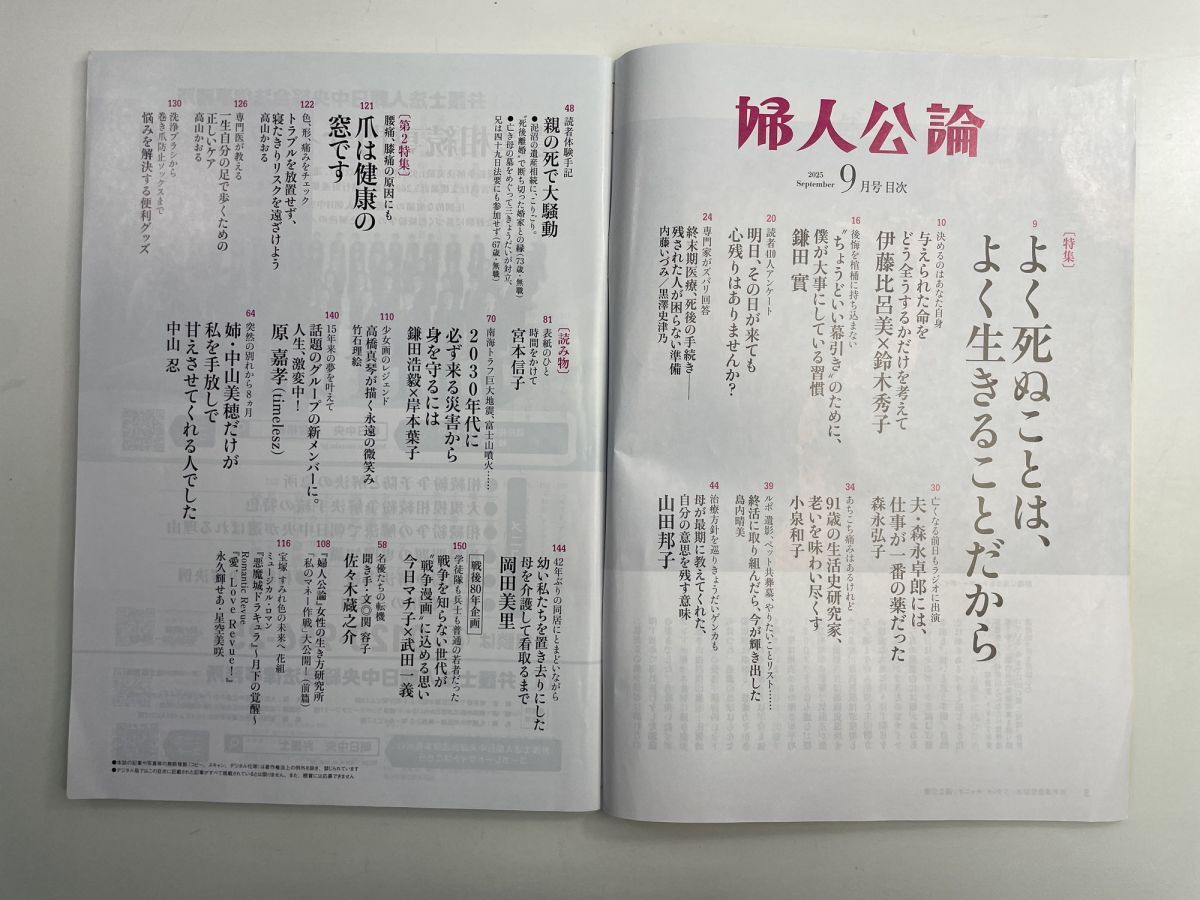 婦人公論
2025
September
9月号 目次
［特集］
9
よく死ぬことは、
よく生きることだから
10
決めるのはあなた自身
与えられた命を
どう全うするかだけを考えて
伊藤比呂美×鈴木秀子
16
後悔を棺桶に持ち込まない
“ちょうどいい幕引き”のために、
僕が大事にしている習慣
鎌田 實
20
読者410人アンケート
明日、その日が来ても
心残りはありませんか？
24
専門家がズバリ回答
終末期医療、死後の手続き――
残された人が困らない準備
内藤いづみ／黒澤史津乃
30
亡くなる前日もラジオに出演
夫・森永卓郎には、
仕事が一番の薬だった
森永弘子
34
あちこち痛みはあるけれど
91歳の生活史研究家、
老いを味わい尽くす
小泉和子
39
ルポ 遺影、ペット共葬墓、やりたいことリスト……
終活に取り組んだら、今が輝き出した
島内晴美
44
治療方針を巡りきょうだいゲンカも
母が最期に教えてくれた、
自分の意思を残す意味
山田邦子
48
読者体験手記
親の死で大騒動
●泥沼の遺産相続に、こりごり。
“死後離婚”で断ち切った婚家との縁（73歳・無職）
●亡き母の墓をめぐって三きょうだいが対立、
兄は四十九日法要にも参加せず（67歳・無職）
［第2特集］
121
腰痛、膝痛の原因にも
爪は健康の
窓です
122
色、形、痛みをチェック
トラブルを放置せず、
寝たきりリスクを遠ざけよう
高山かおる
126
専門医が教える
一生自分の足で歩くための
正しいケア
高山かおる
130
洗浄ブラシから
巻き爪防止ソックスまで
悩みを解決する便利グッズ
［読み物］
81
表紙のひと
時間をかけて
宮本信子
70
南海トラフ巨大地震、富士山噴火……
2030年代に
必ず来る災害から
身を守るには
鎌田浩毅×岸本葉子
110
少女画のレジェンド
高橋真琴が描く永遠の微笑み
竹石理絵
140
15年来の夢を叶えて
話題のグループの新メンバーに。
人生、激変中！
原 嘉孝(timelesz)
64
突然の別れから8ヵ月
姉・中山美穂だけが
私を手放しで
甘えさせてくれる人でした
中山 忍
144
42年ぶりの同居にとまどいながら
幼い私たちを置き去りにした
母を介護して看取るまで
岡田美里
戦後80年企画
150
学徒隊も兵士も普通の若者だった
戦争を知らない世代が
“戦争漫画”に込める思い
今日マチ子×武田一義
58
名優たちの転機
聞き手・文◎関 容子
佐々木蔵之介
108
『婦人公論』女性の生き方研究所
「私のマネー作戦」大公開！（前篇）
116
宝塚 すみれ色の未来へ 花組
ミュージカル・ロマン
『悪魔城ドラキュラ』～月下の覚醒～
Romantic Revue
『愛、Love Revue！』
永久輝せあ・星空美咲
●本誌の記事や写真等の無断複製（コピー、スキャン、デジタル化等）は著作権法上の例外を除き、禁じられています
●デジタル版ではこの目次に記載された記事がすべて掲載されているとは限りません。また、懸賞には応募できません